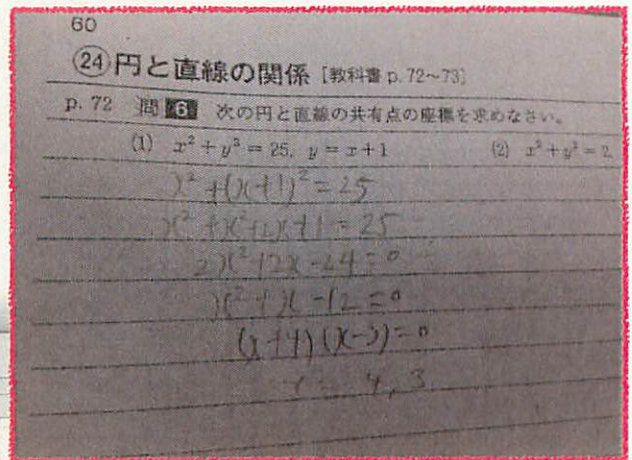 60
24 円と直線の関係 [教科書 p. 72~73]
p. 72 問 6 次の円と直線の共有点の座標を求めなさい。
(1) x² + y² = 25, y = x + 1 (2) x² + y² = 2,
x² + (x+1)² = 25
x² + x² + 2x + 1 = 25
2x² + 2x - 24 = 0
x² + x - 12 = 0
(x+4)(x-3) = 0
x = 4, 3